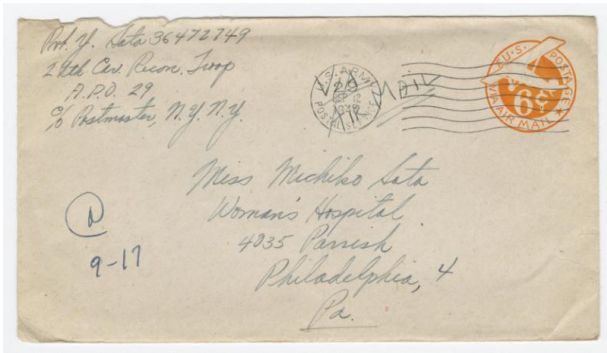 Pvt. Y. Sata 36472749
29th Cav. Recon. Troop
A.P.O. 29
c/o Postmaster, N.Y. N.Y.
U.S. ARMY
POSTAL SERVICE
AIR MAIL
U.S. POSTAGE
6¢
VIA AIR MAIL
Miss Michiko Sata
Woman's Hospital
4035 Parrish
Philadelphia, 4
Pa.
9-17